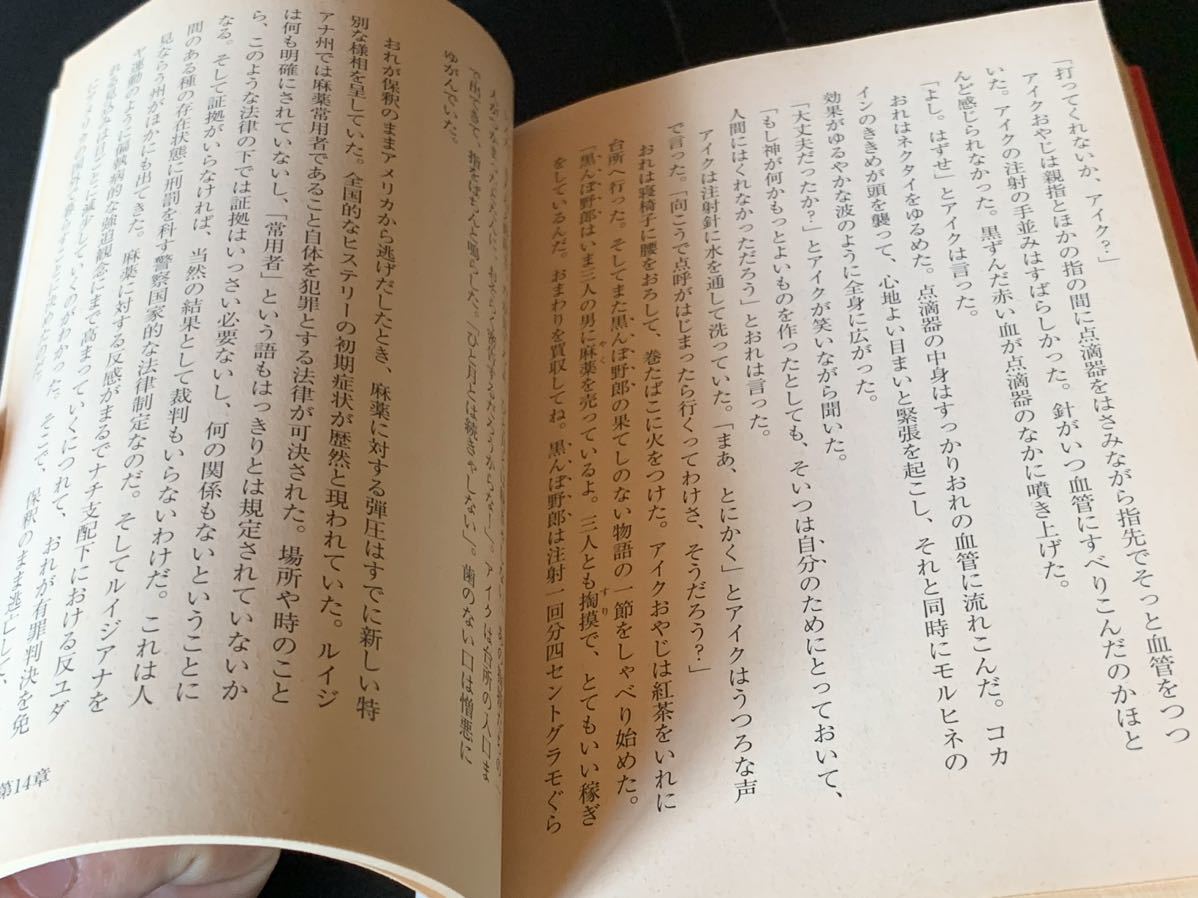 「打ってくれないか、アイク?」
アイクおやじは親指とほかの指の間に点滴器をはさみながら指先でそっと血管をつつ
いた。アイクの注射の手並みはすばらしかった。針がいつ血管にすべりこんだのかほと
んど感じられなかった。黒ずんだ赤い血が点滴器のなかに噴き上げた。
「よし。はずせ」とアイクは言った。
おれはネクタイをゆるめた。点滴器の中身はすっかりおれの血管に流れこんだ。コカ
インのききめが頭を襲って、心地よい目まいと緊張を起こし、それと同時にモルヒネの
効果がゆるやかな波のように全身に広がった。
「大丈夫だったか?」とアイクが笑いながら聞いた。
「もし神が何かもっとよいものを作ったとしても、そいつは自分のためにとっておいて、
人間にはくれなかっただろう」とおれは言った。
アイクは注射針に水を通して洗っていた。「まあ、とにかく」とアイクはうつろな声
で言った。「向こうで点呼がはじまったら行くってわけさ、そうだろう?」
おれは寝椅子に腰をおろして、巻たばこに火をつけた。アイクおやじは紅茶をいれに
台所へ行った。そしてまた黒んぼ野郎の果てしのない物語の一節をしゃべり始めた。
「黒んぼ野郎はいま三人の男に麻薬を売っているよ。三人とも掏摸で、とてもいい稼ぎ
やく
すり
をしているんだ。おまわりを買収してね。黒んぼ野郎は注射一回分四セントグラモぐら
アイクは台所の入口ま
で出てきて、指をぱちんと鳴らした。「ひと月とは続きゃしない」。歯のない口は憎悪に
ゆがんでいた。
おれが保釈のままアメリカから逃げだしたとき、麻薬に対する弾圧はすでに新しい特
別な様相を呈していた。全国的なヒステリーの初期症状が歴然と現われていた。ルイジ
アナ州では麻薬常用者であること自体を犯罪とする法律が可決された。場所や時のこと
は何も明確にされていないし、「常用者」という語もはっきりとは規定されていないか
ら、このような法律の下では証拠はいっさい必要ないし、何の関係もないということに
なる。そして証拠がいらなければ、当然の結果として裁判もいらないわけだ。これは人
間のある種の存在状態に刑罰を科す警察国家的な法律制定なのだ。そしてルイジアナを
見ならう州がほかにも出てきた。麻薬に対する反感がまるでナチ支配下における反ユダ
ヤ運動のように偏執病的な強迫観念にまで高まっていくにつれて、おれが有罪判決を免
れる見込みは日ごとに減少していくのがわかった。そこで、保釈のまま逃亡して、
第14章